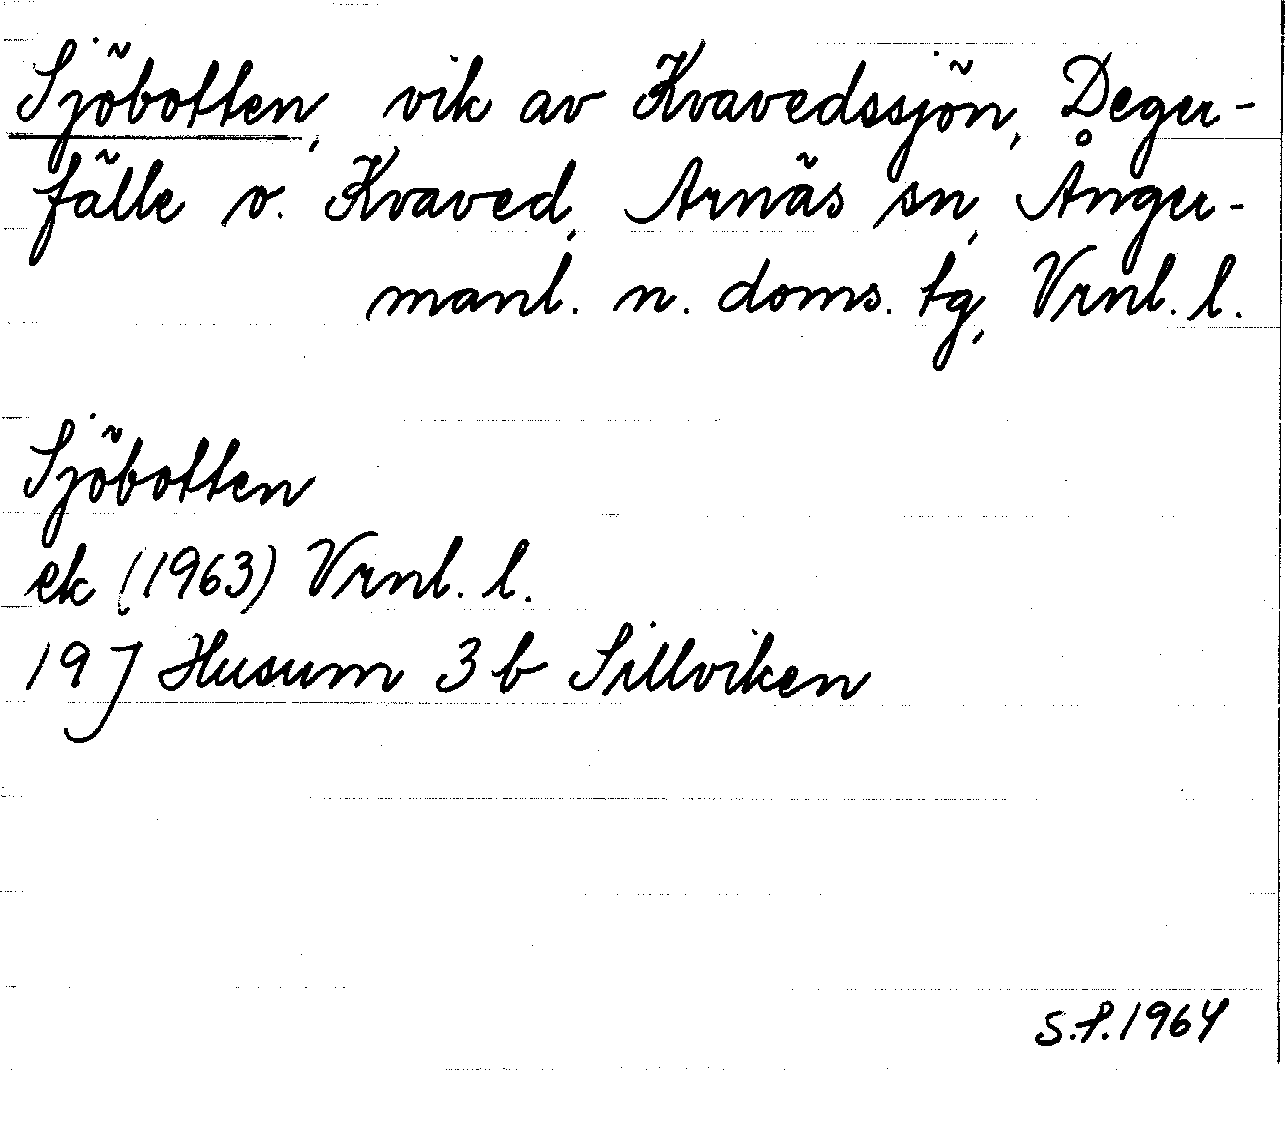 Sjöbotten, vik av Kvavedssjön, Deger-
fälle o. Kvaved, Arnäs sn, Ånger-
manl. n. doms. tg, Vrnl. l.
Sjöbotten
ek (1963) Vrnl. l.
19 J Husum 3 b Sillviken
S.P. 1964